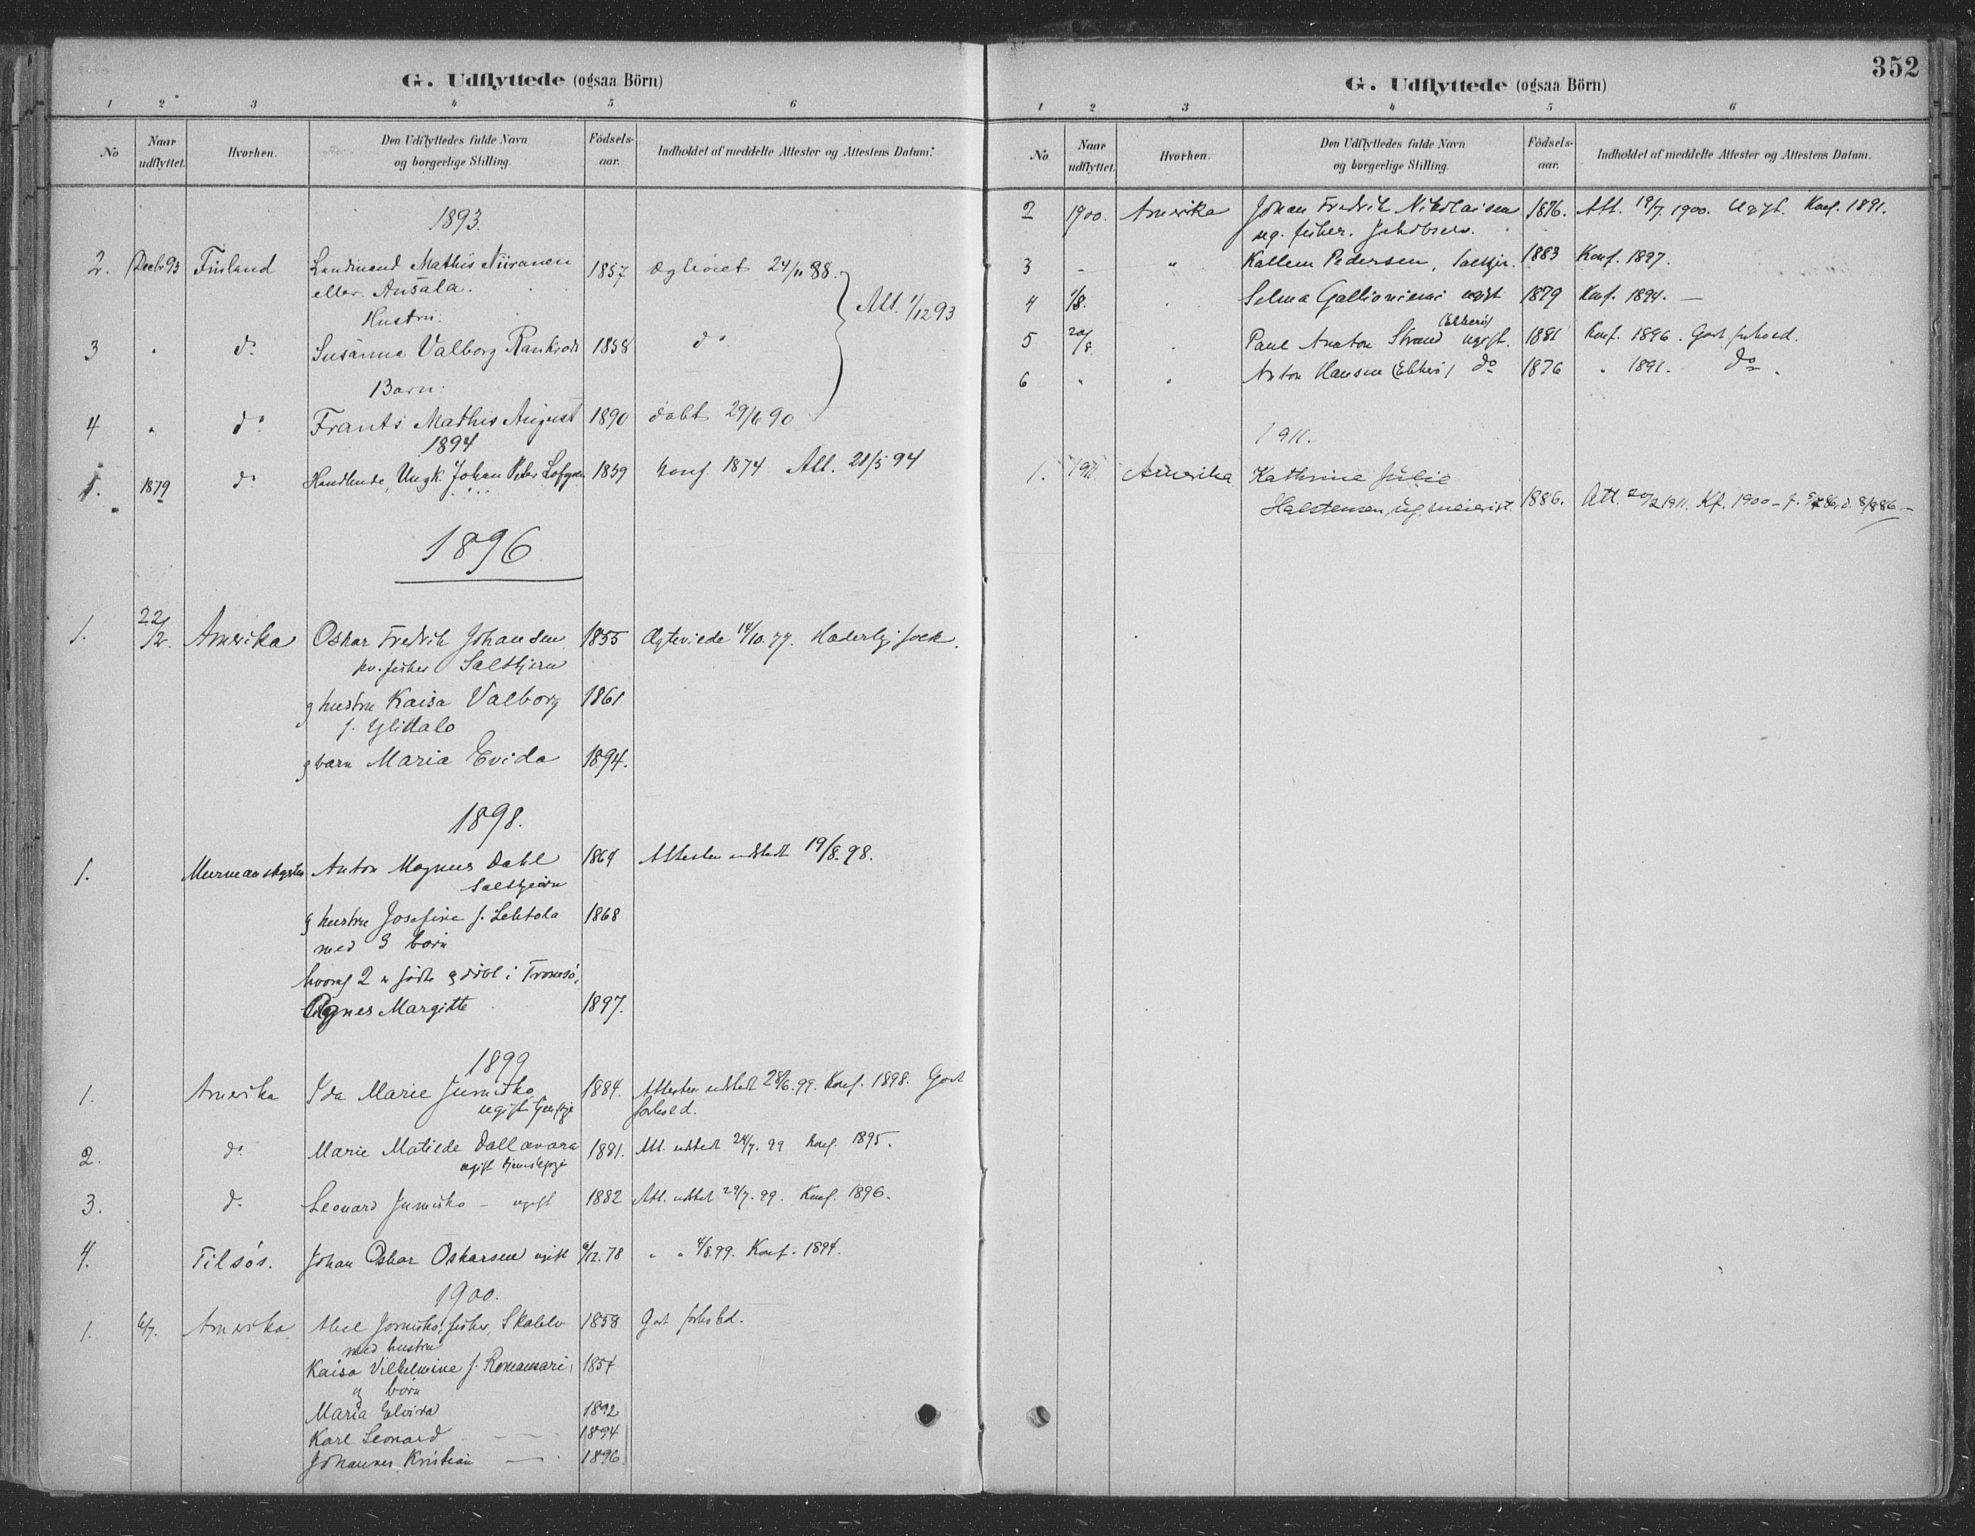 G. Udflyttede (ogsaa Börn)
1 2 3 4 5 6
No Naar udflyttet. Hvorhen. Den Udflyttedes fulde Navn og borgerlige Stilling. Födsels-aar. Indholdet af meddelte Attester og Attestens Datum.
1893.
2. Decbr 93 Finland Mathis Niiranen 1857 24/11 88.
eller Ansala.
Hustru: Att. 1/12 93
3 " do Susanna Valborg 1858 do
Barn:
4 " do Frants Mathis August 1890 döbt 29/6 90
1894
1. 1879 do Handlende, Ungk. Johan Peter Lofgren 1859 konf 1874 Att. 21/5 94
1896
1. 22/2. Amerika Oskar Fredrik Johansen 1855 Ægteviede 14/10.77.
kv. fisker Salttjern
g hustru Kaisa Valborg 1861
f. Ylitalo
g barn Maria Evida 1894.
1898.
1. Murmanskysten Anton Magnus Dahl 1864 Attesten udstedt 19/8.98.
Salttjern
g hustru Josefine f. Lehtola 1868
med 3 börn
hvoraf 2 er födte g döbt i Tromsö,
Agnes Margitte 1897.
1899
1. Amerika Ida Marie Jumisko 1884. Attesten udstedt 28/6.99. Konf. 1898. Godt
ugift forhold.
2. do Marie Matilde Dallavara 1881. Att. udstedt 24/7. 99 Konf. 1895.
ugift
3. do Leonard Jumisko – ugift 1882 Att. udstedt 29/7. 99. Konf. 1896.
4. Tilsös. Johan Oskar Oskarsen ugift /12.78 " " 4/8 99. Konf. 1894.
1900.
1. 6/7. Amerika Abel fisker, 1858 Godt forhold.
med hustru
Kaisa Vilhelmine f. 1857
g börn
Maria Elvira 1892
Karl Leonard – – 1894
Johannes Kristian – 1896
352
G. Udflyttede (ogsaa Börn)
1 2 3 4 5 6
No Naar udflyttet. Hvorhen. Den Udflyttedes fulde Navn og borgerlige Stilling. Födsels-aar. Indholdet af meddelte Attester og Attestens Datum.
2 1900. Amerika Johan Fredrik Nikolaisen 1876. Att. 19/7. 1900. Ugift. Konf. 1891.
ug. fisker.
3 – " Kallem Pedersen, Salttjer. 1883 Konf. 1897.
4 1/8. " Selma Gallioniemi ugift 1879 Konf. 1894. –
(Ekkerö)
5 20/8. " Paul Anton Strand ugift. 1881 Konf. 1896. Godt forhold.
6 " " Anton Hansen (Ekkerö) do 1876 " 1891. do.
1911.
1. 1911. Amerika Kathrine Julie
Halstensen, ug. meierist. 1886. Att. 20/2 1911. Kf. 1900 –